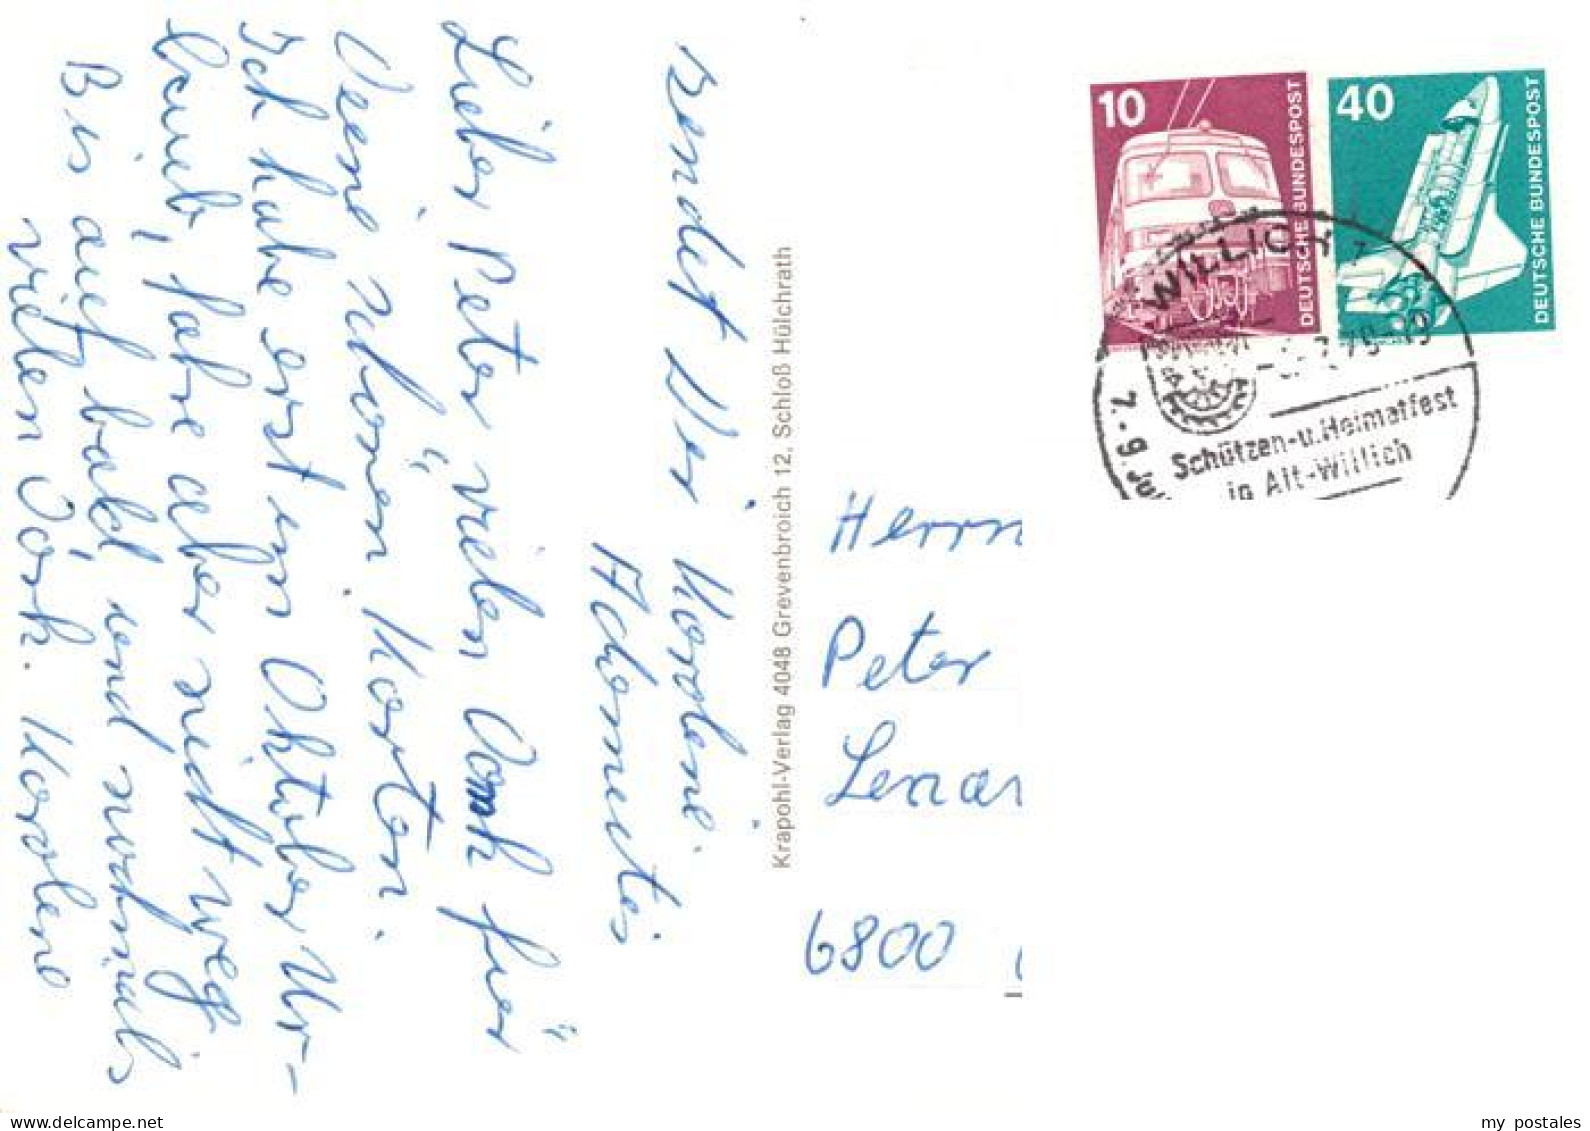 sendet Dir Karolene
Adomeitis
Lieber Peter, vielen Dank für
Deine schönen Karten.
Ich habe erst im Oktober Ur-
laub, fahre aber nicht weg
Bis auf bald und nochmals
vielen Dank. Karolene
Krapohl-Verlag 4048 Grevenbroich 12, Schloß Hülchrath
10
DEUTSCHE BUNDESPOST
40
DEUTSCHE BUNDESPOST
WILLICH 1
79-19
7.-9. Ju
Schützen-u.Heimatfest
in Alt-Willich
Herrn
Peter
Lenar
6800
my postales